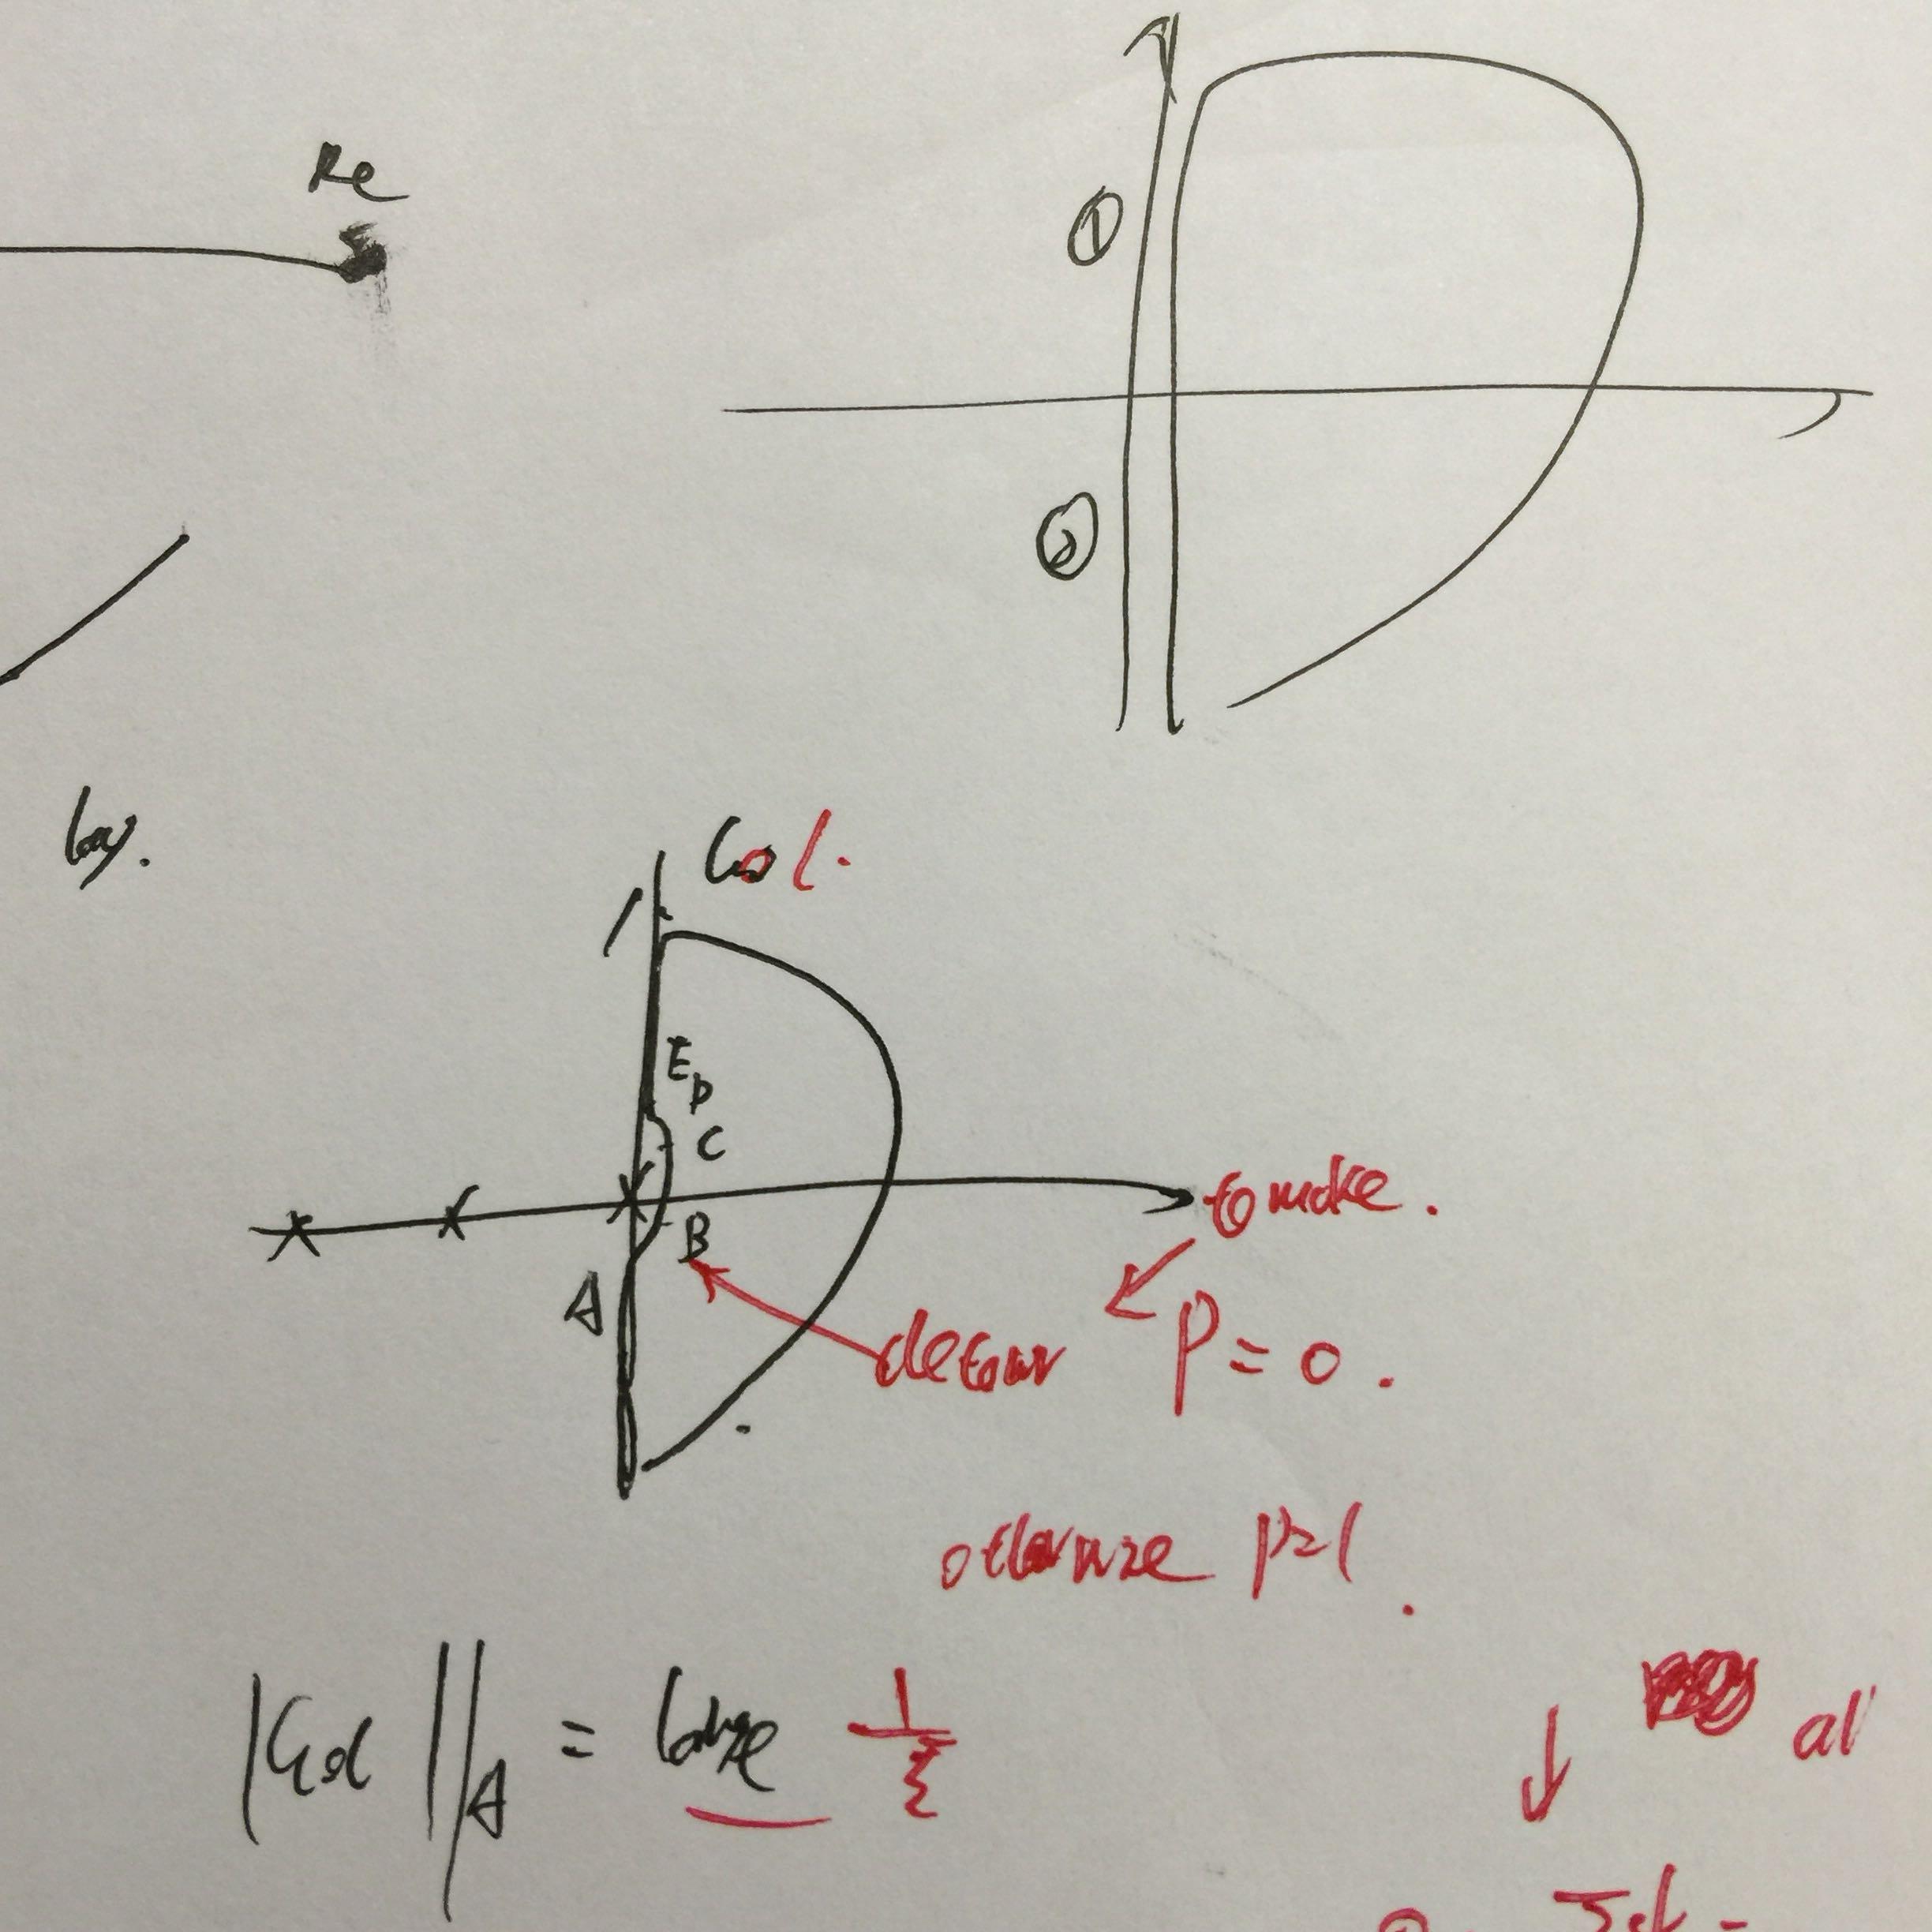 Re
①
②
E
D
C
B
A
to make.
detour P = 0.
otherwise P=1.
| |A = large 1/ξ
al